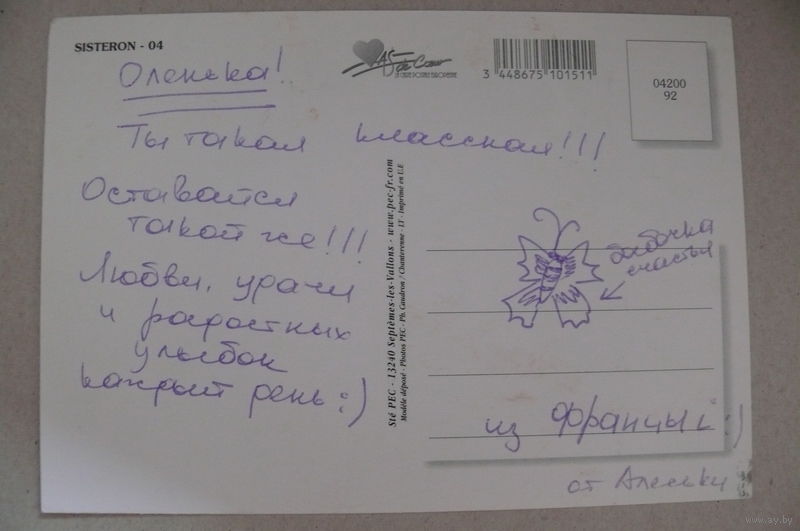 SISTERON - 04
Оленька!
AS de Cœur
LA CARTE POSTALE EUROPEENNE
3 448675 101511
04200
92
Ты такая классная!!!
Оставайся
такой же!!!
Любви, удачи
и радостных
улыбок
каждый день :)
Sté PEC - 13240 Septèmes-les-Vallons - www.pec-fr.com
Modèle déposé - Photos PEC - Ph. Gaudron / Chanterenne - 17 - Imprimé en U.E
бабочка
счастья
из Франции :)
от Аленьки
www.ay.by